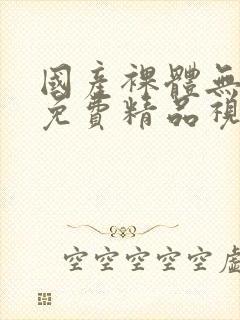 國產裸體無
免費精品視
空空空空空虛